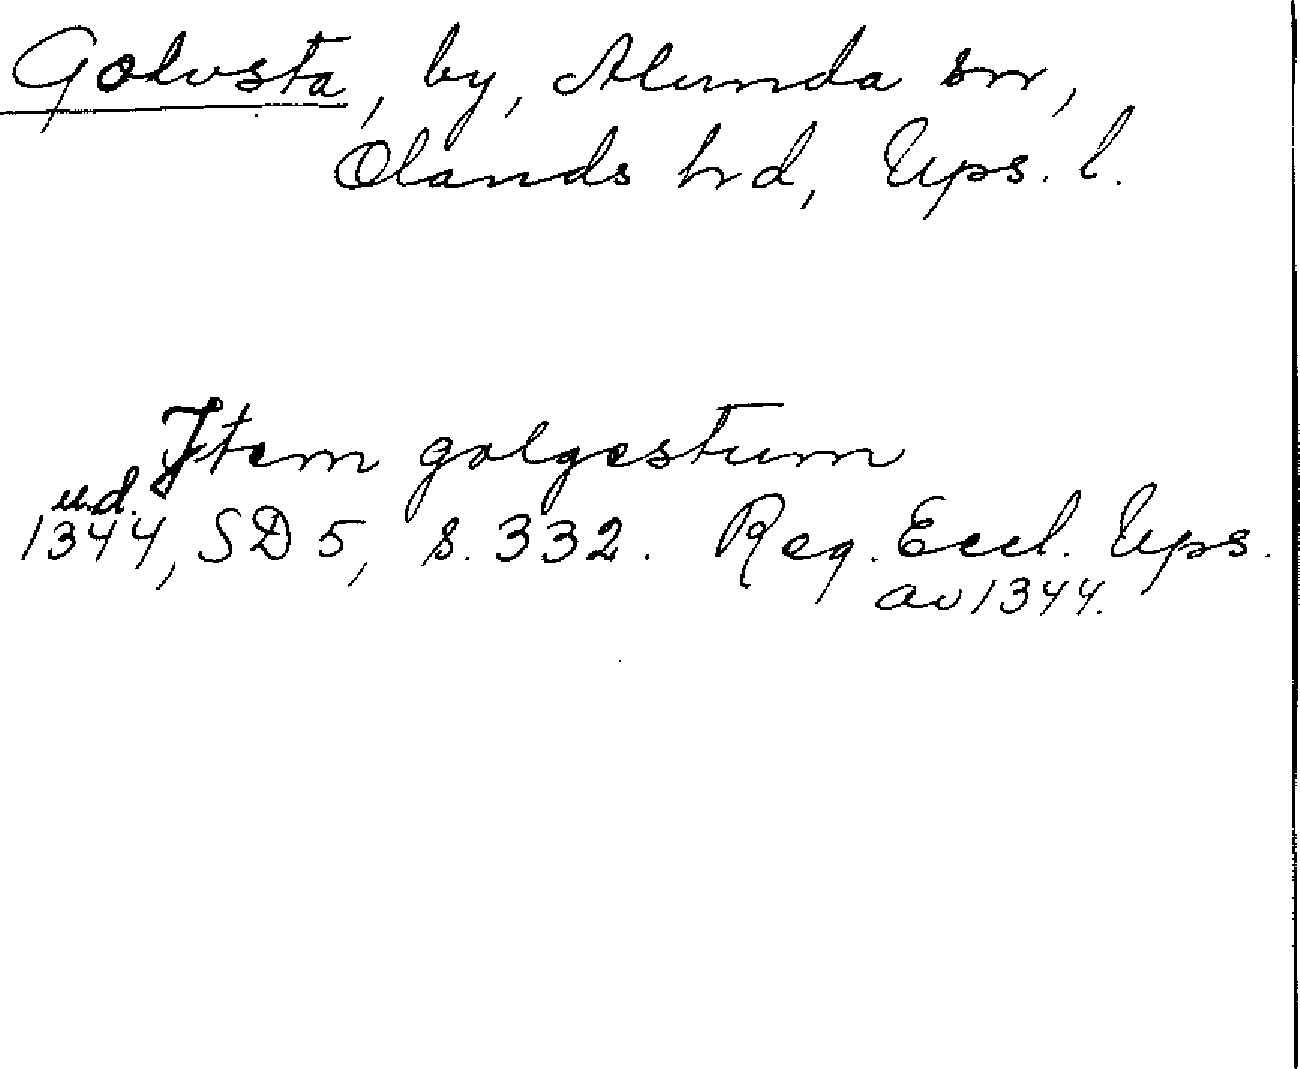 Golvsta, by, Alunda sn,
Olands hd, Ups. l.
Item golgestum
u.d.
1344, SD 5, s. 332. Reg. Eccl. Ups.
av 1344.